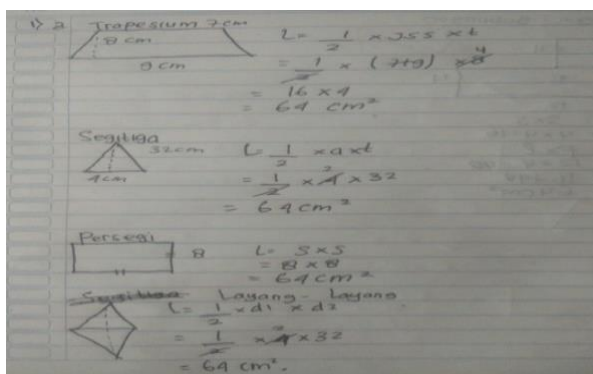 1) 2 Trapesium 7cm
8 cm
9 cm
L = 1/2 x JSS x t
= 1/2 x (7+9) x 8 4
= 16 x 4
= 64 cm²
Segitiga
32cm
4cm
L = 1/2 x a x t
= 1/2 x 4 2 x 32
= 64 cm²
Persegi
8
L = S x S
= 8 x 8
= 64 cm²
Segitiga Layang-Layang
L = 1/2 x d1 x d2
= 1/2 x 4 2 x 32
= 64 cm².